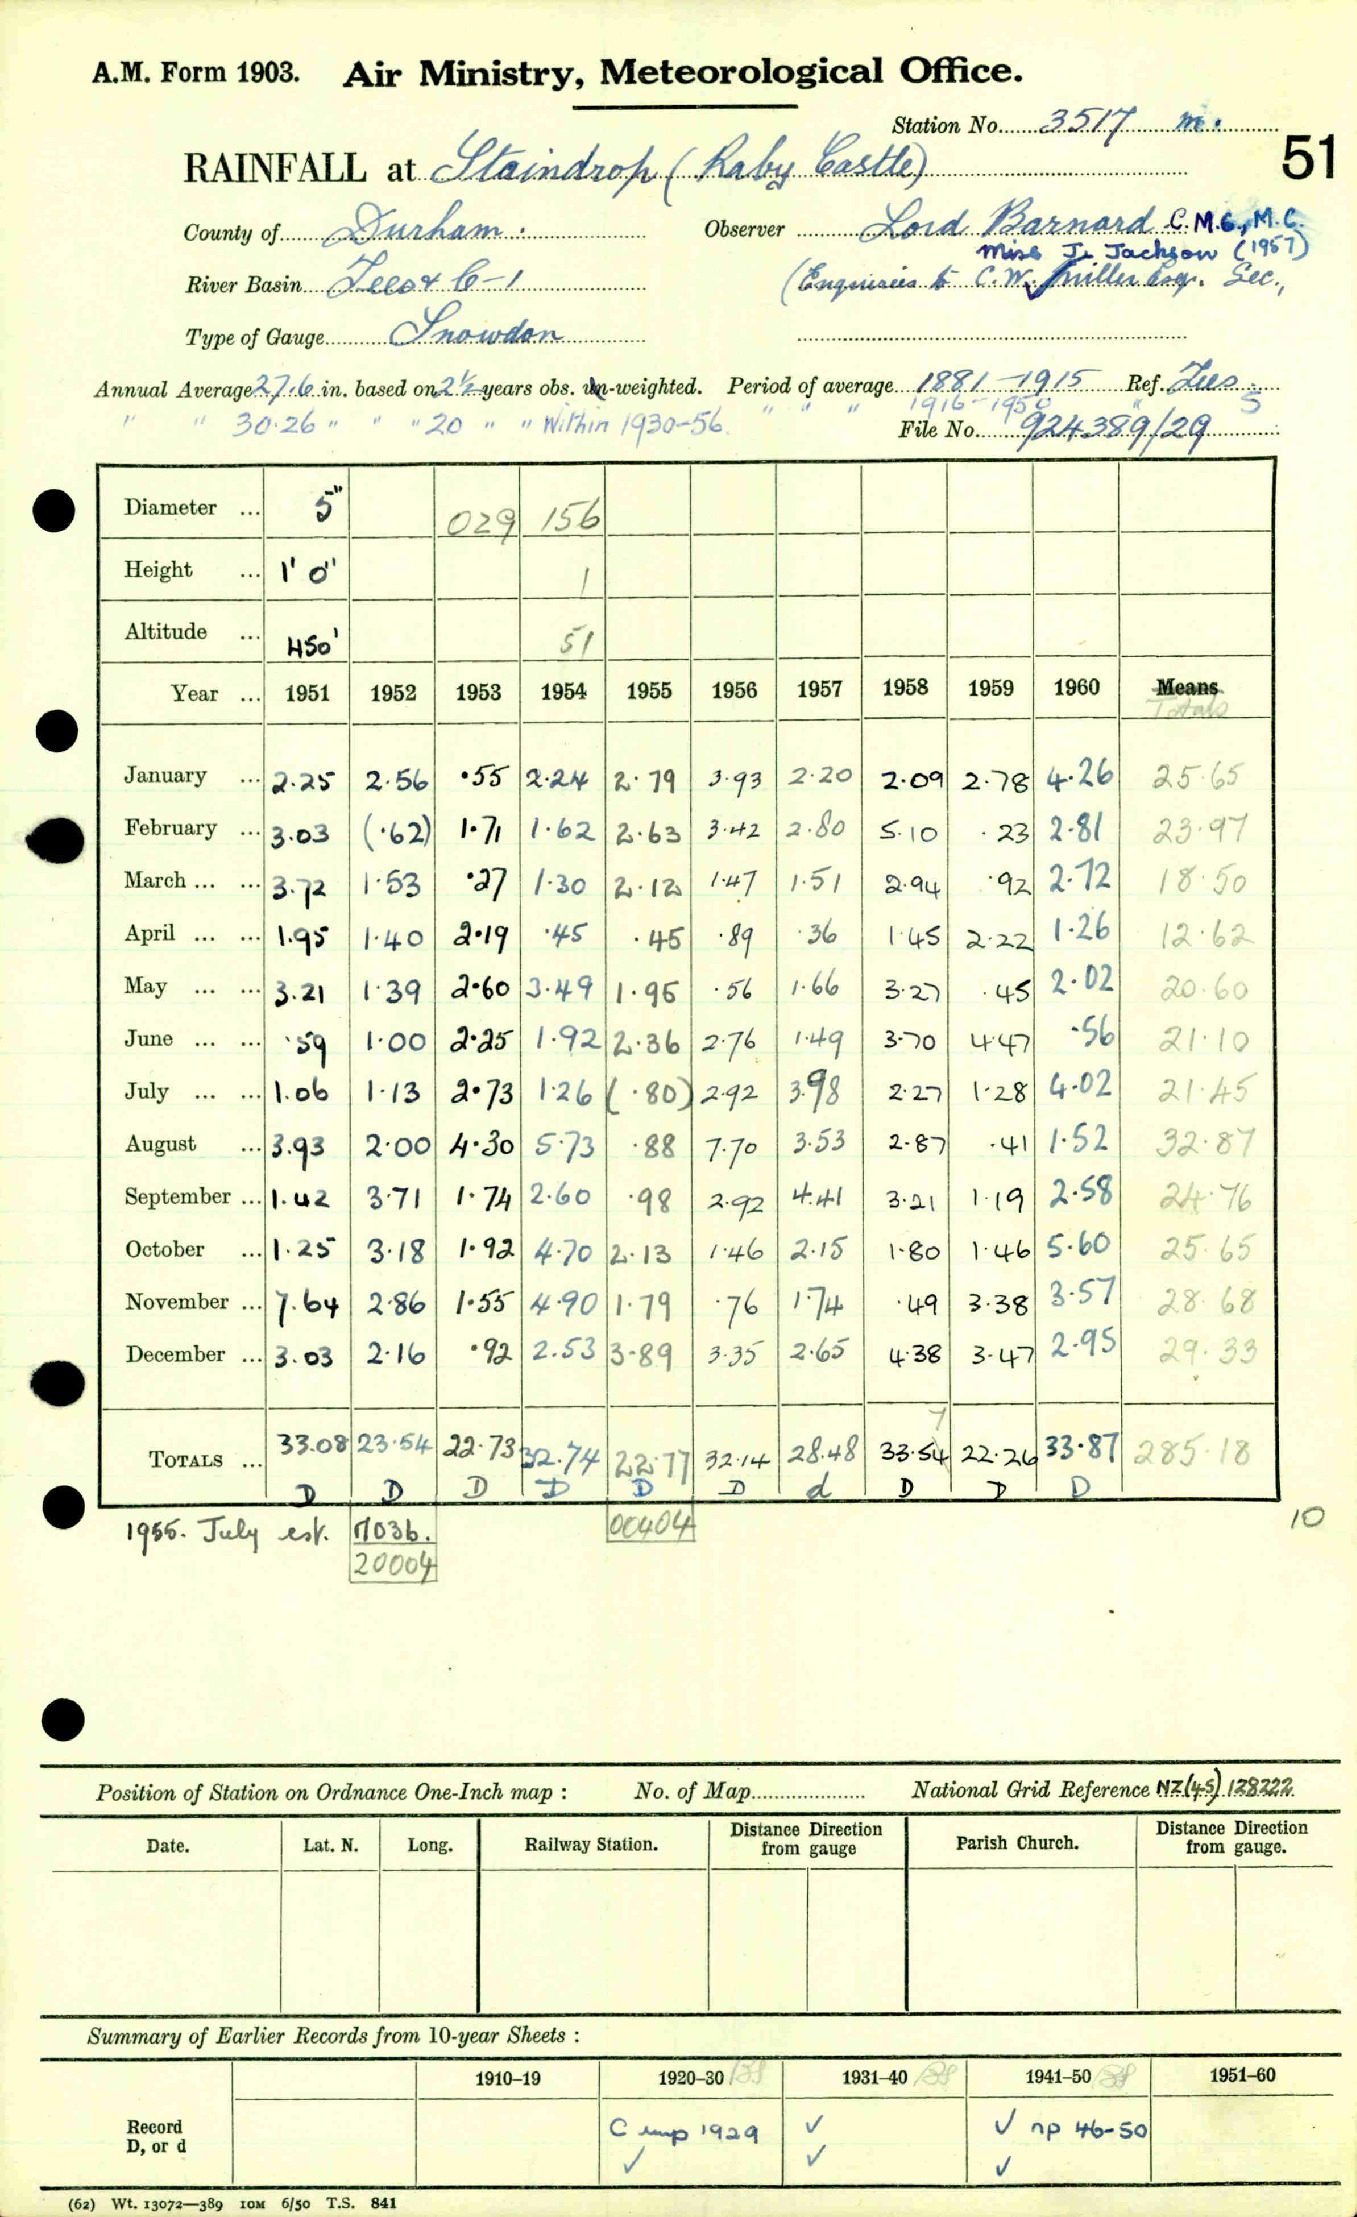 A.M. Form 1903. Air Ministry, Meteorological Office.
Station No. 3517 m.
51
RAINFALL at Staindrop (Raby Castle)
County of Durham. Observer Lord Barnard C.M.G., M.C.
Miss J. Jackson (1957)
River Basin Tees & C-1 (Enquiries to C.W. Miller Esq. Sec.,
Type of Gauge Snowdon
Annual Average 27.6 in. based on 2½ years obs. un-weighted. Period of average 1881-1915 Ref. Tees
" " 30.26 " " " 20 " " Within 1930-56. " " " 1916-1950 " 5
File No. 924389/29
Diameter ... 5" 029 156
Height ... 1' 0" 1
Altitude ... 450' 51
Year ... 1951 1952 1953 1954 1955 1956 1957 1958 1959 1960 Means
Totals
January ... 2.25 2.56 .55 2.24 2.79 3.93 2.20 2.09 2.78 4.26 25.65
February ... 3.03 (.62) 1.71 1.62 2.63 3.42 2.80 5.10 .23 2.81 23.97
March ... ... 3.72 1.53 .27 1.30 2.12 1.47 1.51 2.94 .92 2.72 18.50
April ... ... 1.95 1.40 2.19 .45 .45 .89 .36 1.45 2.22 1.26 12.62
May ... ... 3.21 1.39 2.60 3.49 1.95 .56 1.66 3.27 .45 2.02 20.60
June ... ... .59 1.00 2.25 1.92 2.36 2.76 1.49 3.70 4.47 .56 21.10
July ... ... 1.06 1.13 2.73 1.26 (.80) 2.92 3.98 2.27 1.28 4.02 21.45
August ... 3.93 2.00 4.30 5.73 .88 7.70 3.53 2.87 .41 1.52 32.87
September ... 1.42 3.71 1.74 2.60 .98 2.92 4.41 3.21 1.19 2.58 24.76
October ... 1.25 3.18 1.92 4.70 2.13 1.46 2.15 1.80 1.46 5.60 25.65
November ... 7.64 2.86 1.55 4.90 1.79 .76 1.74 .49 3.38 3.57 28.68
December ... 3.03 2.16 .92 2.53 3.89 3.35 2.65 4.38 3.47 2.95 29.33
7
TOTALS ... 33.08 23.54 22.73 32.74 22.77 32.14 28.48 33.54 22.26 33.87 285.18
D D D D D D d D D D
1955. July est. 7036. 00404 10
20004
Position of Station on Ordnance One-Inch map : No. of Map National Grid Reference NZ(45) 128222
Date. Lat. N. Long. Railway Station. Distance from gauge Direction Parish Church. Distance from gauge. Direction
Summary of Earlier Records from 10-year Sheets :
1910-19 1920-30 1931-40 1941-50 1951-60
Record C 1929 ✓ ✓ np 46-50
D, or d ✓ ✓ ✓
(62) Wt. 13072—389 10M 6/50 T.S. 841